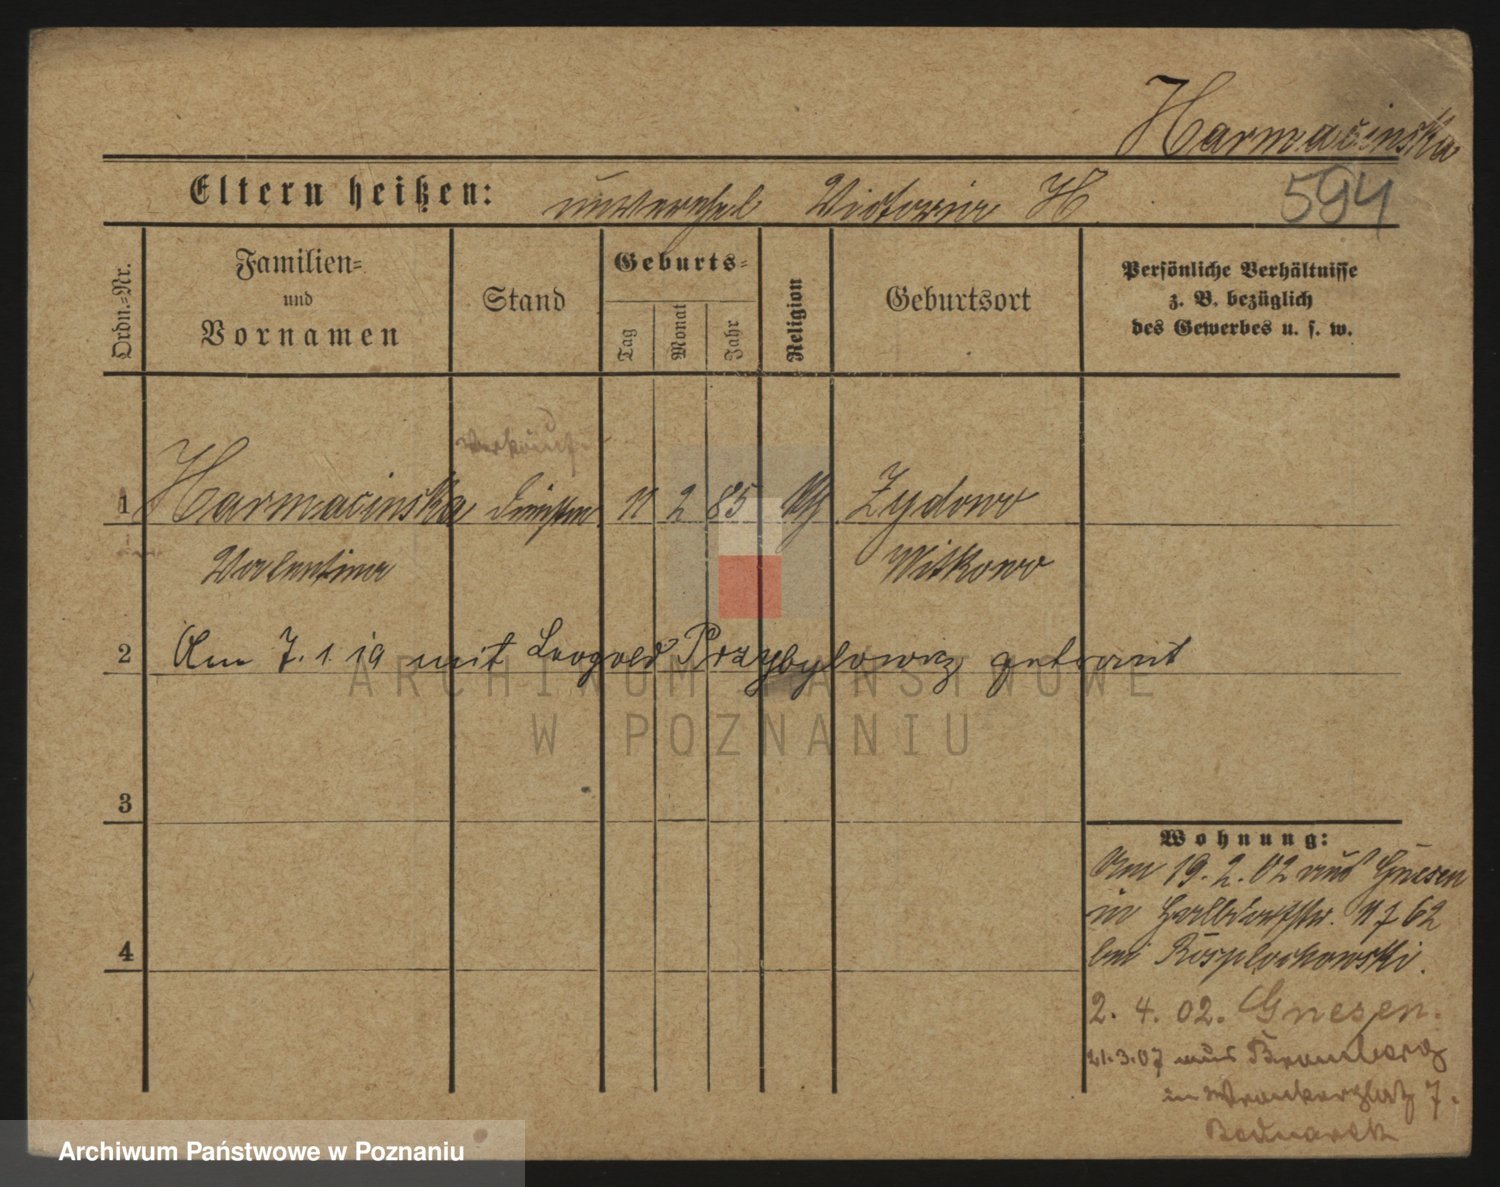 Harmacinska
594
Eltern heißen: unverehel Victoria H
Ordn.-Nr.
Familien-
und
Vornamen
Stand
Geburts-
Tag
Monat
Jahr
Religion
Geburtsort
Persönliche Verhältnisse
z. B. bezüglich
des Gewerbes u. s. w.
Verkäuf
1 Harmacinska 11 2 85 Zydowo
Valentina Witkowo
2 Am 7. 1. 19 mit Leopold Przybylowicz getraut
3
4
Wohnung:
Am 19. 2. 02 aus Gnesen
in Halbdorfstr.
bei
2. 4. 02. Gnesen.
21.3.07 aus Bromberg
in Wronkerplatz 7.
Bednarek
ARCHIWUM PAŃSTWOWE
W POZNANIU
Archiwum Państwowe w Poznaniu